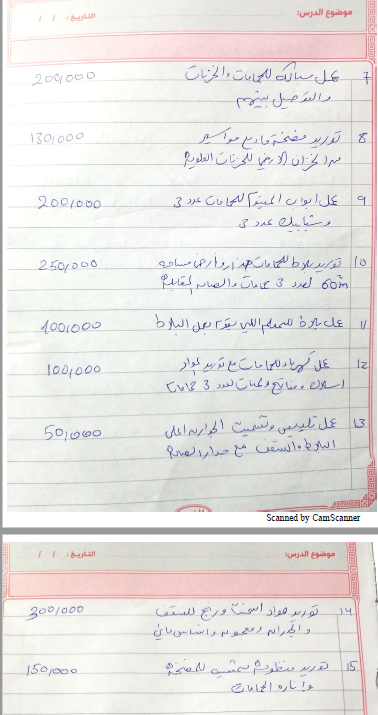 موضوع الدرس: التاريخ: / /
7 عمل سباكة للحمامات والخزانات 200,000
والتوصيل بينهم
8 توريد مضخة ماء مع مواسير 130,000
من الخزان الارضي للخزنات العلوية
9 عمل ابواب المنيوم للحمامات عدد 3 200,000
وشبابيك عدد 3
10 توريد بلاط للحمامات جدار وارض مساحه 250,000
60m لعدد 3 حمامات والصاله المقابلة
11 عمل بلاط للمعلم اللي يقوم بعمل البلاط 100,000
12 عمل كهرباء للحمامات مع توريد المواد 100,000
اسلاك ومفاتيح ولمبات لعدد 3 حمامات
13 عمل تلييس وتشميت الجدران اعلى 50,000
البلاط والسقف مع جدار الصالة
Scanned by CamScanner
موضوع الدرس: التاريخ: / /
14 توريد مواد اسمنت ورمل للسقف 300,000
والجدران
15 توريد منظومة شمسية للمضخة 150,000
وإناره الحمامات